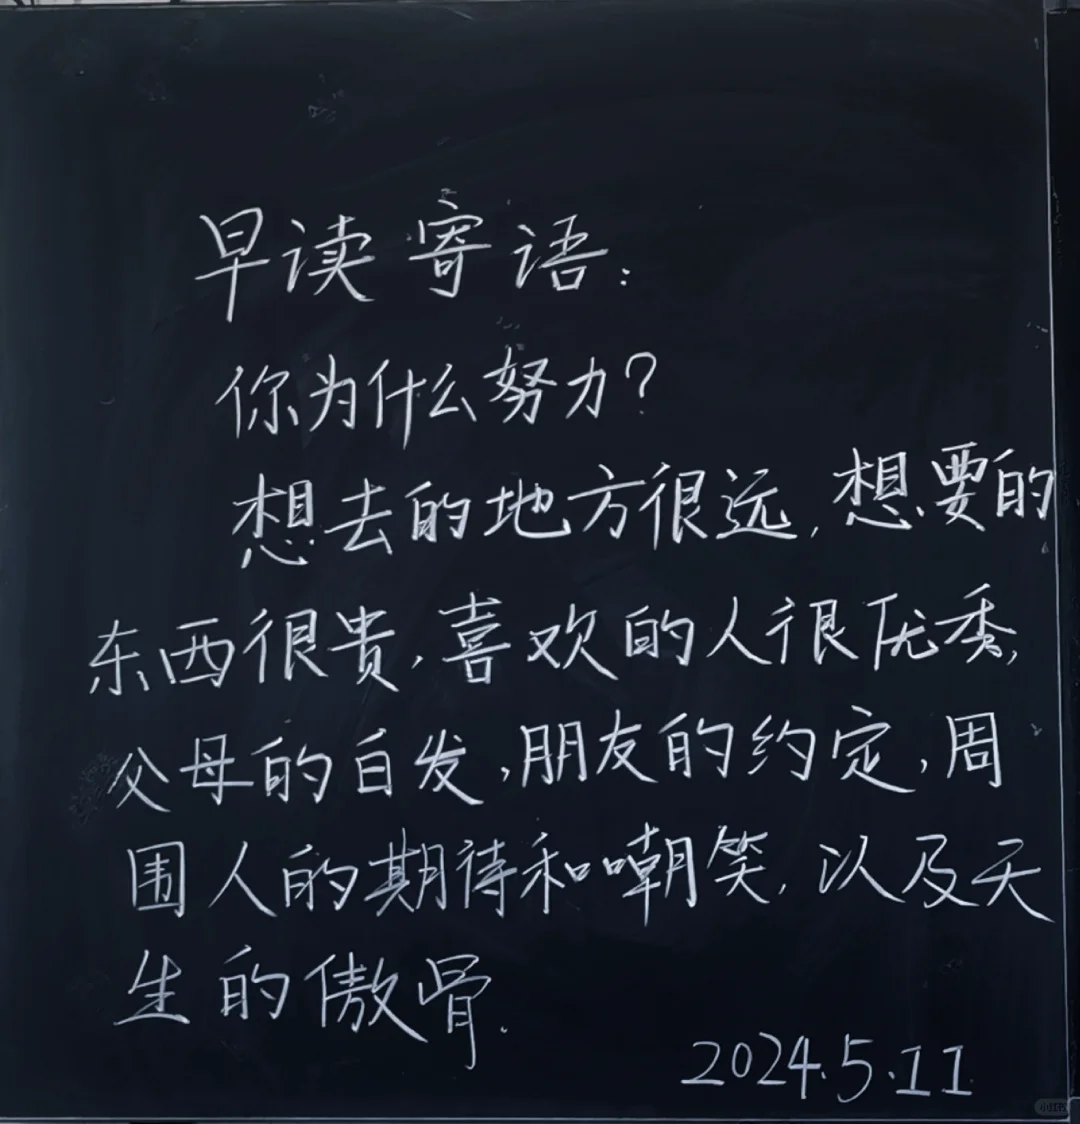 早读寄语:
你为什么努力?
想去的地方很远,想要的
东西很贵,喜欢的人很优秀,
父母的白发,朋友的约定,周
围人的期待和嘲笑,以及天
生的傲骨.
2024.5.11
小红书